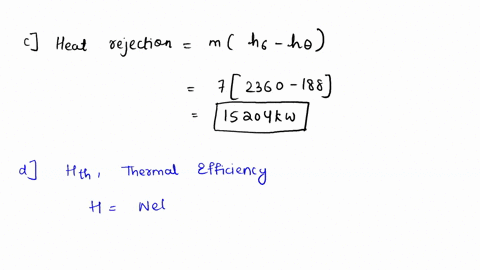 c] Heat rejection = m ( h6 - hθ )
= 7 [ 2360 - 188 ]
= 15204 kw
d] Hth, Thermal Efficiency
H = Net